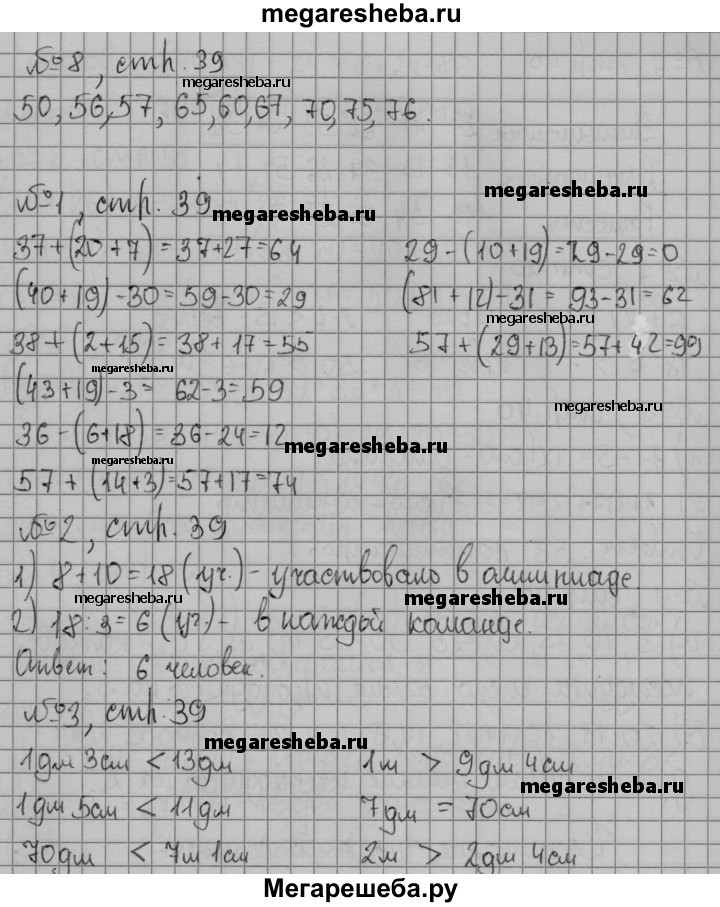 megaresheba.ru
№8, стр. 39
megaresheba.ru
50, 56, 57, 65, 60, 67, 70, 75, 76.
megaresheba.ru
№1, стр. 39
megaresheba.ru
37+(20+7)=37+27=64 29-(10+19)=29-29=0
(40+19)-30=59-30=29 (81+12)-31=93-31=62
megaresheba.ru
38+(2+15)=38+17=55 57+(29+13)=57+42=99
megaresheba.ru
(43+19)-3= 62-3=59
megaresheba.ru
36-(6+18)=36-24=12
megaresheba.ru
megaresheba.ru
57+(14+3)=57+17=74
№2, стр. 39
1) 8+10=18 (уч.) - участвовало в олимпиаде.
megaresheba.ru
megaresheba.ru
2) 18:3=6 (уч.) - в каждой команде.
Ответ: 6 человек.
№3, стр. 39
megaresheba.ru
1дм 3см < 13дм 1м > 9дм 4см
megaresheba.ru
1дм 5см < 11дм 7дм = 70см
70дм < 7м 1см 2м > 2дм 4см
Мегарешеба.ру